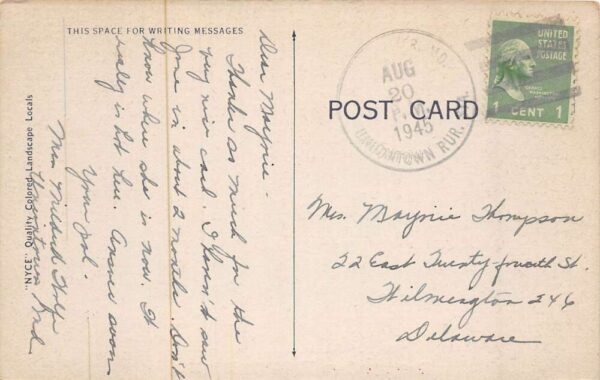 THIS SPACE FOR WRITING MESSAGES
Dear Marjorie -
Thanks so much for the
very nice card. I haven't saw
June in about 2 months. Don't
know where she is now. It
really is hot here. Answer soon
Your pal -
Mrs. Mildred
Uniontown Md.
"NYCE" Quality Colored Landscape Locals
POST CARD
MD.
AUG
20
P.M.
1945
UNIONTOWN RUR.
UNITED
STATES
POSTAGE
1 CENT 1
Mrs. Marjorie Thompson
22 East Twenty fourth St.
Wilmington 246
Delaware